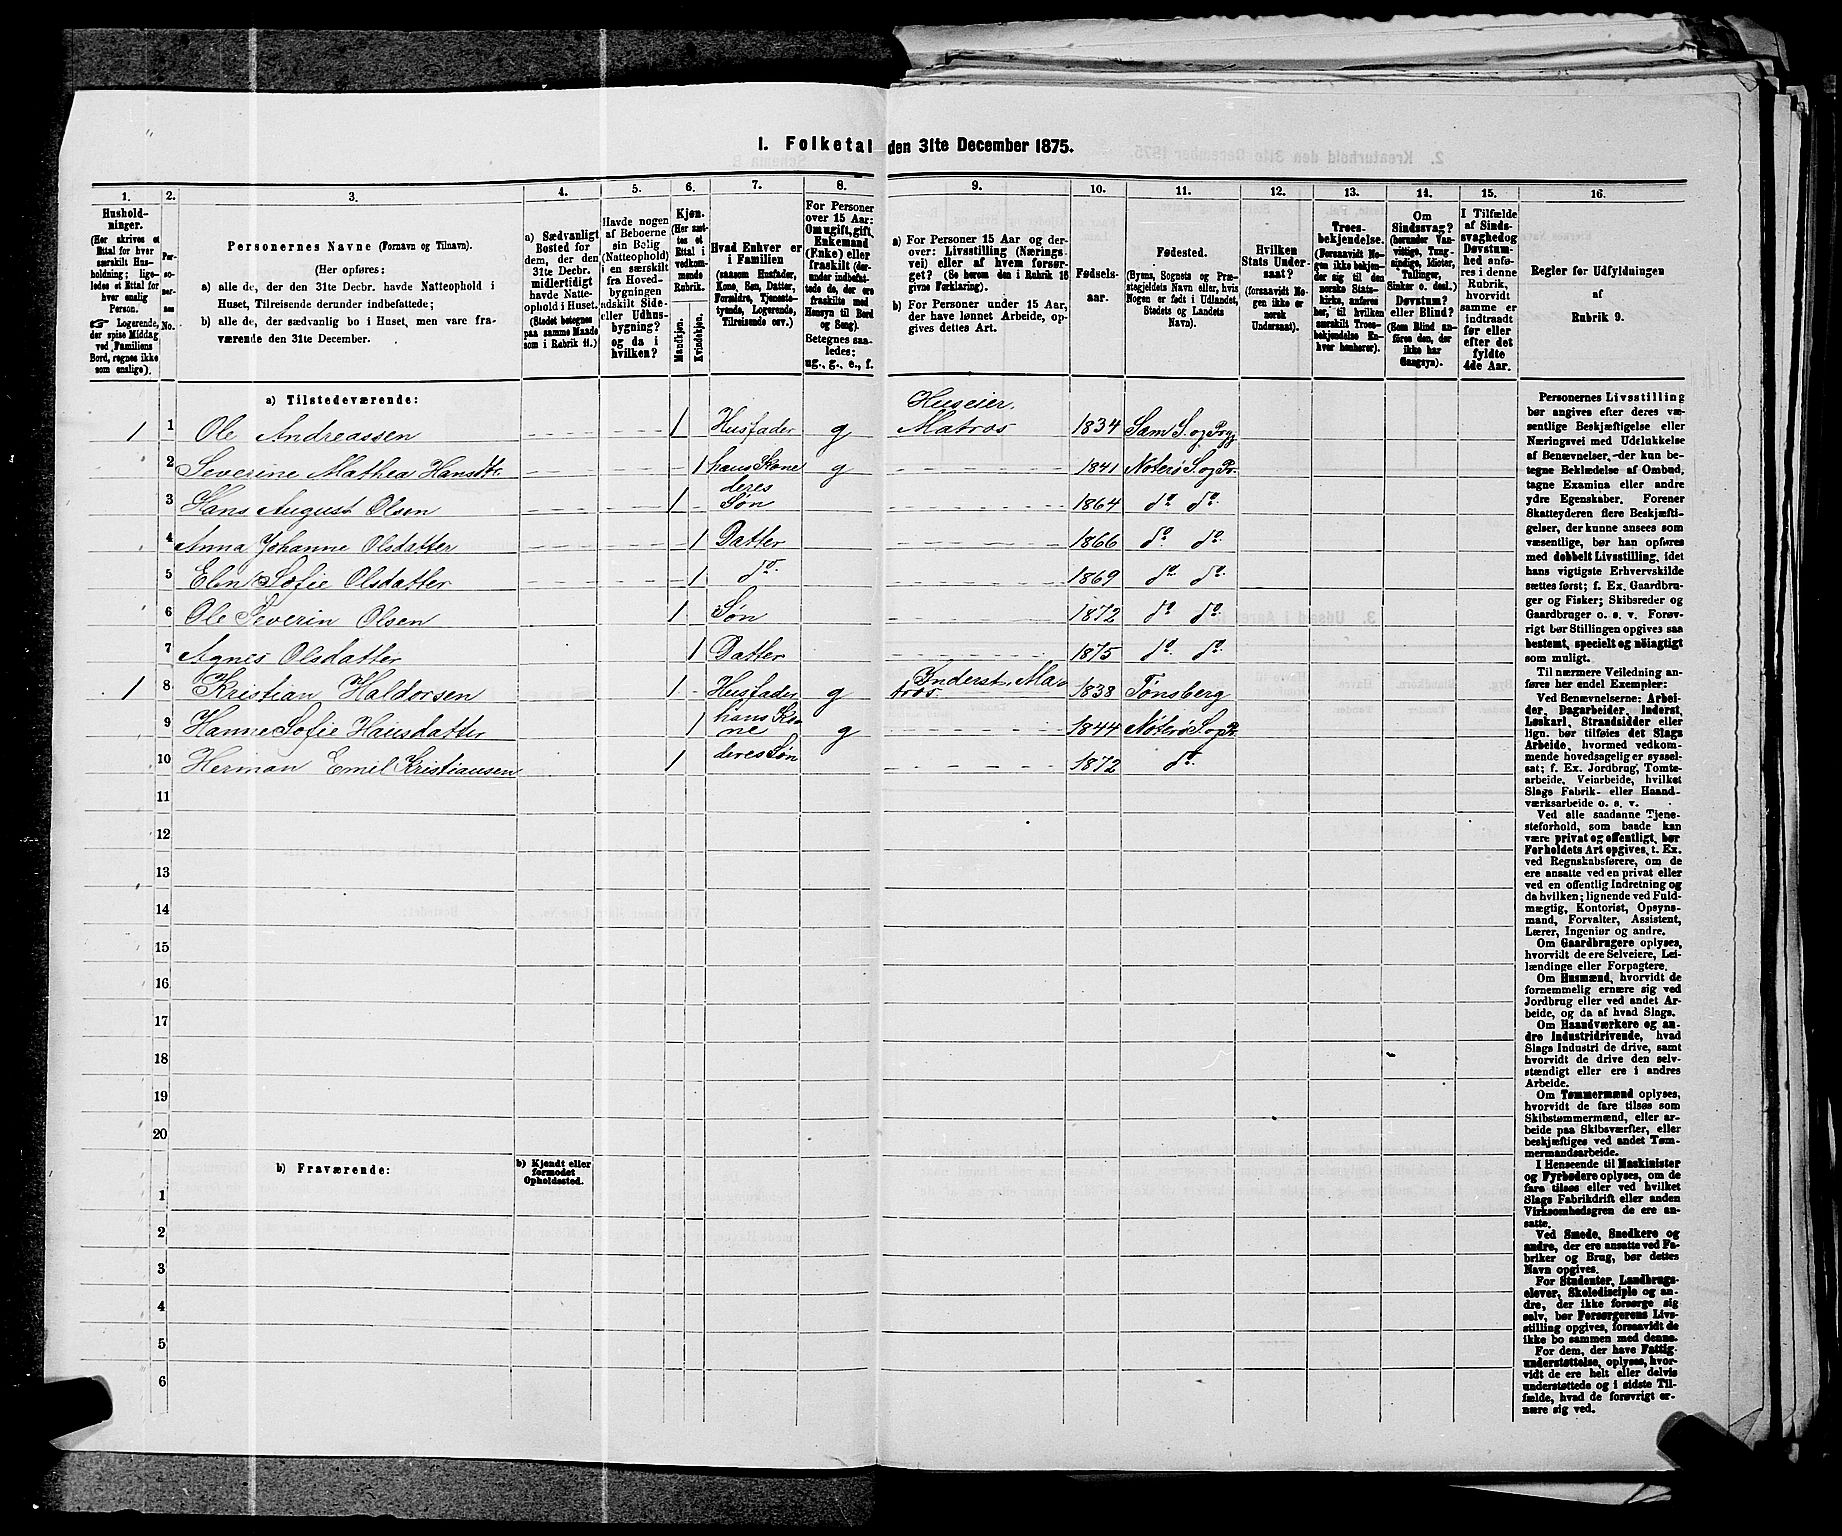 1. Folketal den 31te December 1875.
1. 2. 3. 4. 5. 6. 7. 8. 9. 10. 11. 12. 13. 14. 15. 16.
Hushold-
ninger.
(Her skrives et
Ettal for hver
særskilt Hus-
holdning; lige-
ledes et Ettal for
hver enslig
Person.
☞ Logerende,
der spise Middag
ved Familiens
Bord, regnes ikke
som enslige).
Per-
so-
ner-
nes
No.
Personernes Navne (Fornavn og Tilnavn).
(Her opføres:
a) alle de, der den 31te Decbr. havde Natteophold i
Huset, Tilreisende derunder indbefattede;
b) alle de, der sædvanlig bo i Huset, men vare fra-
værende den 31te December.
a) Sædvanligt
Bosted for
dem, der den
31te Decbr.
midlertidigt
havde Natte-
ophold i Huset.
(Stedet betegnes
paa samme Maade
som i Rubrik 11.)
Havde nogen
af Beboerne
sin Bolig
(Natteophold)
i en særskilt
fra Hoved-
bygningen
adskilt Side-
eller Udhus-
bygning?
og da i
hvilken?
Kjøn.
(Her sæt-
tes et
Ettal i
vedkom-
mende
Rubrik.
Mandkjøn.
Kvindekjøn.
Hvad Enhver er
i Familien
(saasom Husfader,
Kone, Søn, Datter,
Forældre, Tjeneste-
tyende, Logerende,
Tilreisende osv.)
For Personer
over 15 Aar:
Om ugift, gift,
Enkemand
(Enke) eller
fraskilt (der-
under indbefat-
tede de, der ere
fraskilte med
Hensyn til Bord
og Seng).
Betegnes saa-
ledes:
ug., g., e., f.
a) For Personer 15 Aar og der-
over: Livsstilling (Nærings-
vei) eller af hvem forsør-
get? (Se herom den i Rubrik 16
givne Forklaring).
b) For Personer under 15 Aar,
der have lønnet Arbeide, op-
gives dettes Art.
Fødsels-
aar.
Fødested.
(Byens, Sognets og Præ-
stegjeldets Navn eller, hvis
Nogen er født i Udlandet,
Stedets og Landets
Navn).
Hvilken
Stats Under-
saat?
(forsaavidt No-
gen ikke er
norsk
Undersaat).
Troes-
bekjendelse.
(Forsaavidt No-
gen ikke bekjen-
der sig til den
norske Stats-
kirke, anføres
her, til hvilken
særskilt Troes-
bekjendelse En-
hver henhører).
Om
Sindssvag?
(herunder Van-
vittige, Tung-
sindige, Idioter,
Tullinger,
Sinker o. desl.)
Døvstum?
eller Blind?
(Som Blind an-
føres den, der
ikke har
Gangsyn).
I Tilfælde
af Sinds-
svaghed og
Døvstum-
hed anfø-
res i denne
Rubrik,
hvorvidt
samme er
indtraadt
før eller
efter det
fyldte
4de Aar.
Regler for Udfyldningen
af
Rubrik 9.
a) Tilstedeværende:
1 1 Ole Andreassen 1 Husfader g Huseier. Matros 1834 Sem S. og Prgj.
2 Severine Mathea Hansdtr. 1 hans Kone g 1841 Noterø S. og Pr.
3 Hans August Olsen 1 deres Søn 1864 do. do.
4 Anna Johanne Olsdatter 1 Datter 1866 do. do.
5 Elen Sofie Olsdatter 1 do. 1869 do. do.
6 Ole Severin Olsen 1 Søn 1872 do. do.
7 Agnes Olsdatter 1 Datter 1875 do. do.
1 8 Kristian Haldorsen 1 Husfader g Inderst, Matros 1838 Tønsberg
9 Hanne Sofie Hansdatter 1 hans Kone g 1844 Nøterø S. og Pr.
10 Herman Emil Kristiansen 1 deres Søn 1872 do.
11
12
13
14
15
16
17
18
19
20
b) Fraværende:
b) Kjendt eller
formodet
Opholdssted.
1
2
3
4
5
6
Personernes Livsstilling
bør angives efter deres væ-
sentlige Beskjæftigelse eller
Næringsvei med Udelukkelse
af Benævnelser, der kun be-
tegne Beklædelse af Ombud,
tagne Examina eller andre
ydre Egenskaber. Forener
Skatteyderen flere Beskjæfti-
gelser, der kunne ansees som
væsentlige, bør han opføres
med dobbelt Livsstilling, idet
hans vigtigste Erhvervskilde
sættes først; f. Ex. Gaardbru-
ger og Fisker; Skibsreder og
Gaardbruger o. s. v. Forøv-
rigt bør Stillingen opgives saa
bestemt, specielt og nøiagtigt
som muligt.
Til nærmere Veiledning an-
føres her endel Exempler:
Ved Benævnelserne: Arbei-
der, Dagarbeider, Inderst,
Løskarl, Strandsidder eller
lign. bør tilføies det Slags
Arbeide, hvormed vedkom-
mende hovedsagelig er syssel-
sat; f. Ex. Jordbrug, Tomte-
arbeide, Veiarbeide, hvilket
Slags Fabrik- eller Haand-
værksarbeide o. s. v.
Ved alle saadanne Tjene-
steforhold, som baade kan
være privat og offentligt, bør
Forholdets Art opgives, t. Ex.
ved Regnskabsførere, om de
ere ansatte ved en privat eller
ved en offentlig Indretning og
da hvilken; lignende ved Fuld-
mægtig, Kontorist, Opsyns-
mand, Forvalter, Assistent,
Lærer, Ingeniør og andre.
Om Gaardbrugere oplyses,
hvorvidt de ere Selveiere, Lei-
lændinge eller Forpagtere.
Om Husmænd, hvorvidt de
fornemmelig ernære sig ved
Jordbrug eller ved andet Ar-
beide, og da af hvad Slags.
Om Haandværkere og an-
dre Industridrivende, hvad
Slags Industri de drive, samt
hvorvidt de drive den selv-
stændigt eller ere i andres
Arbeide.
Om Tømmermænd oplyses,
hvorvidt de fare tilsøs som
Skibstømmermænd, eller ar-
beide paa Skibsværfter, eller
beskjæftiges ved andet Tøm-
mermandsarbeide.
I Henseende til Maskinister
og Fyrbødere oplyses, om de
fare tilsøs eller ved hvilket
Slags Fabrikdrift eller anden
Virksomhedsgren de ere an-
satte.
Ved Smede, Snedkere og
andre, der ere ansatte ved Fa-
briker og Brug, bør dettes
Navn opgives.
For Studenter, Landbrugs-
elever, Skoledisciple og an-
dre, der ikke forsørge sig
selv, bør Forsørgerens Livs-
stilling opgives, forsaavidt de
ikke bo sammen med denne.
For dem, der have Fattig-
understøttelse, oplyses, hvor-
vidt de ere helt eller delvis
understøttede og i sidste Til-
fælde, hvad de forøvrigt er-
nære sig ved.